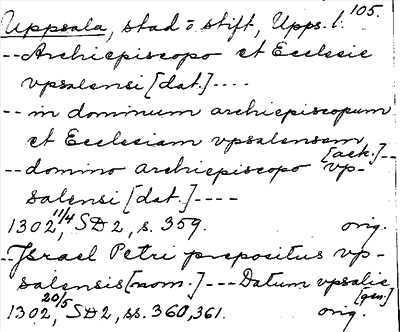 105.
Uppsala, stad o stift, Upps. l.
-- Archiepiscopo et Ecclesie
vpsalensi [dat.] ----
-- in dominum archiepiscopum
et Ecclesiam vpsalensem
[ack.] --
-- domino archiepiscopo vp-
salensi [dat.] ----
1302 11/4, SD 2, s. 359. orig.
-- Israel Petri prepositus vp-
salensis [nom.] --- Datum vpsalie
[gen.]
1302, 20/5 SD 2, ss. 360, 361. orig.